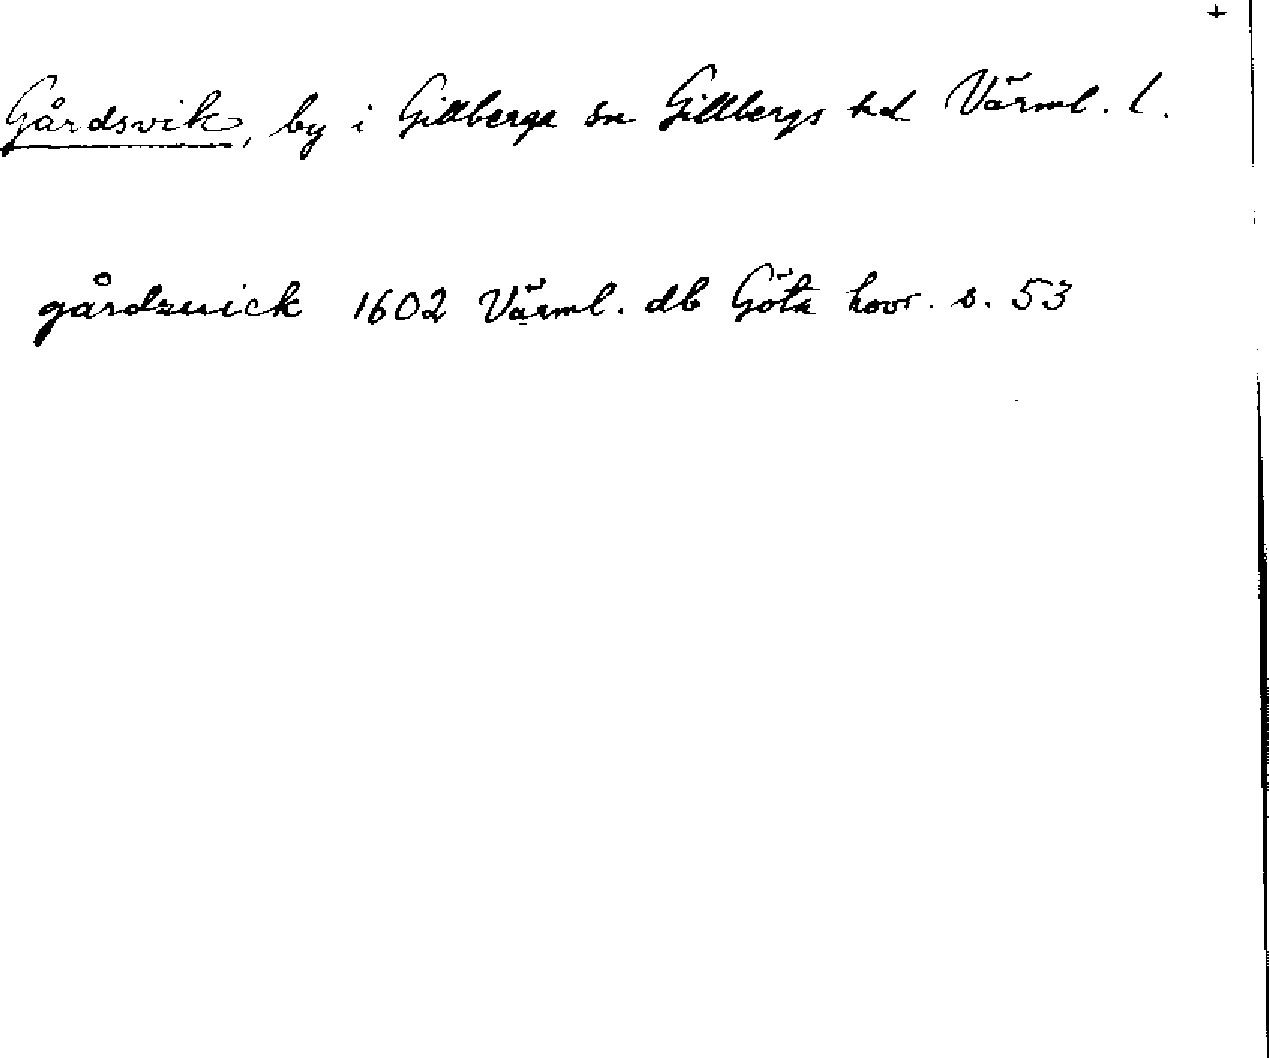 +
Gårdsvik, by i Gillberga sn Gillbergs hd Värml. l.
gårdzuick 1602 Värml. db Göta hovr. s. 53